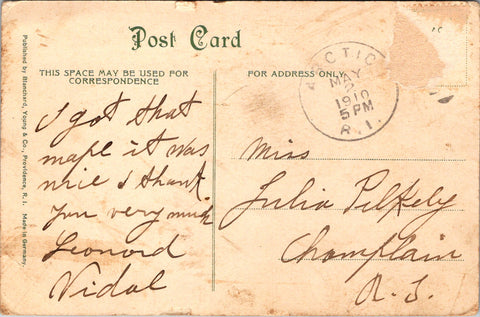 Post Card
THIS SPACE MAY BE USED FOR
CORRESPONDENCE
FOR ADDRESS ONLY
ARCTIC
MAY
2
1910
5 PM
R.I.
I got that
mape it was
nice I thank
you very much
Leonord
Vidal
Miss
Julia Pelkely
Champlain
R. I.
Published by Blanchard, Young & Co., Providence, R. I. Made in Germany.